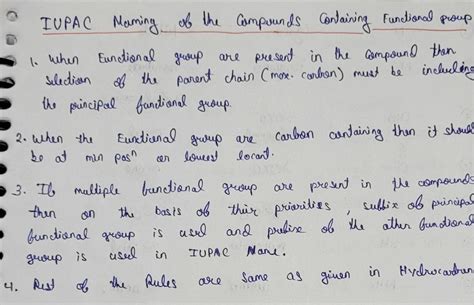 IUPAC Naming of the Compounds Containing Functional group
1. When Functional group are present in the Compound then
selection of the parent chain (max. carbon) must be including
the principal functional group.
2. When the Functional group are carbon containing then it should
be at min posⁿ or lowest locant.
3. If multiple functional group are present in the compounds
then on the basis of their priorities, suffix of principal
functional group is used and prefix of the other functional
group is used in IUPAC Name.
4. Rest of the Rules are same as given in Hydrocarbon